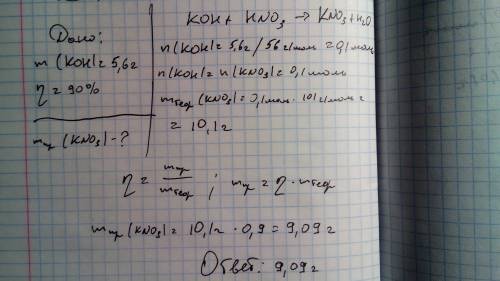 Дано:
m (KOH) = 5,6 г
η = 90%
mпр (KNO3) - ?
KOH + HNO3 → KNO3 + H2O
n (KOH) = 5,6 г / 56 г/моль = 0,1 моль
n (KOH) = n (KNO3) = 0,1 моль
mтеор (KNO3) = 0,1 моль · 101 г/моль =
= 10,1 г
η = mпр / mтеор ; mпр = η · mтеор
mпр (KNO3) = 10,1 г · 0,9 = 9,09 г
Ответ: 9,09 г